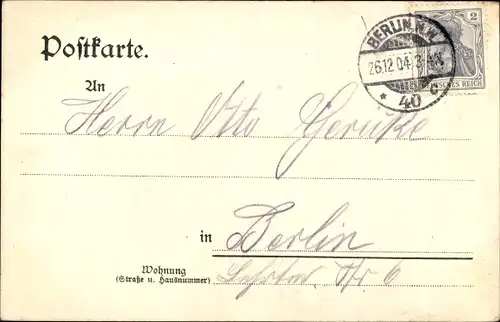 Postkarte.
BERLIN N.W.
26.12.04.3-4N.
* 40 c
2
DEUTSCHES REICH
An
Herrn Otto Gericke
in Berlin
Wohnung
(Straße u. Hausnummer)
Lehrter, Str 6